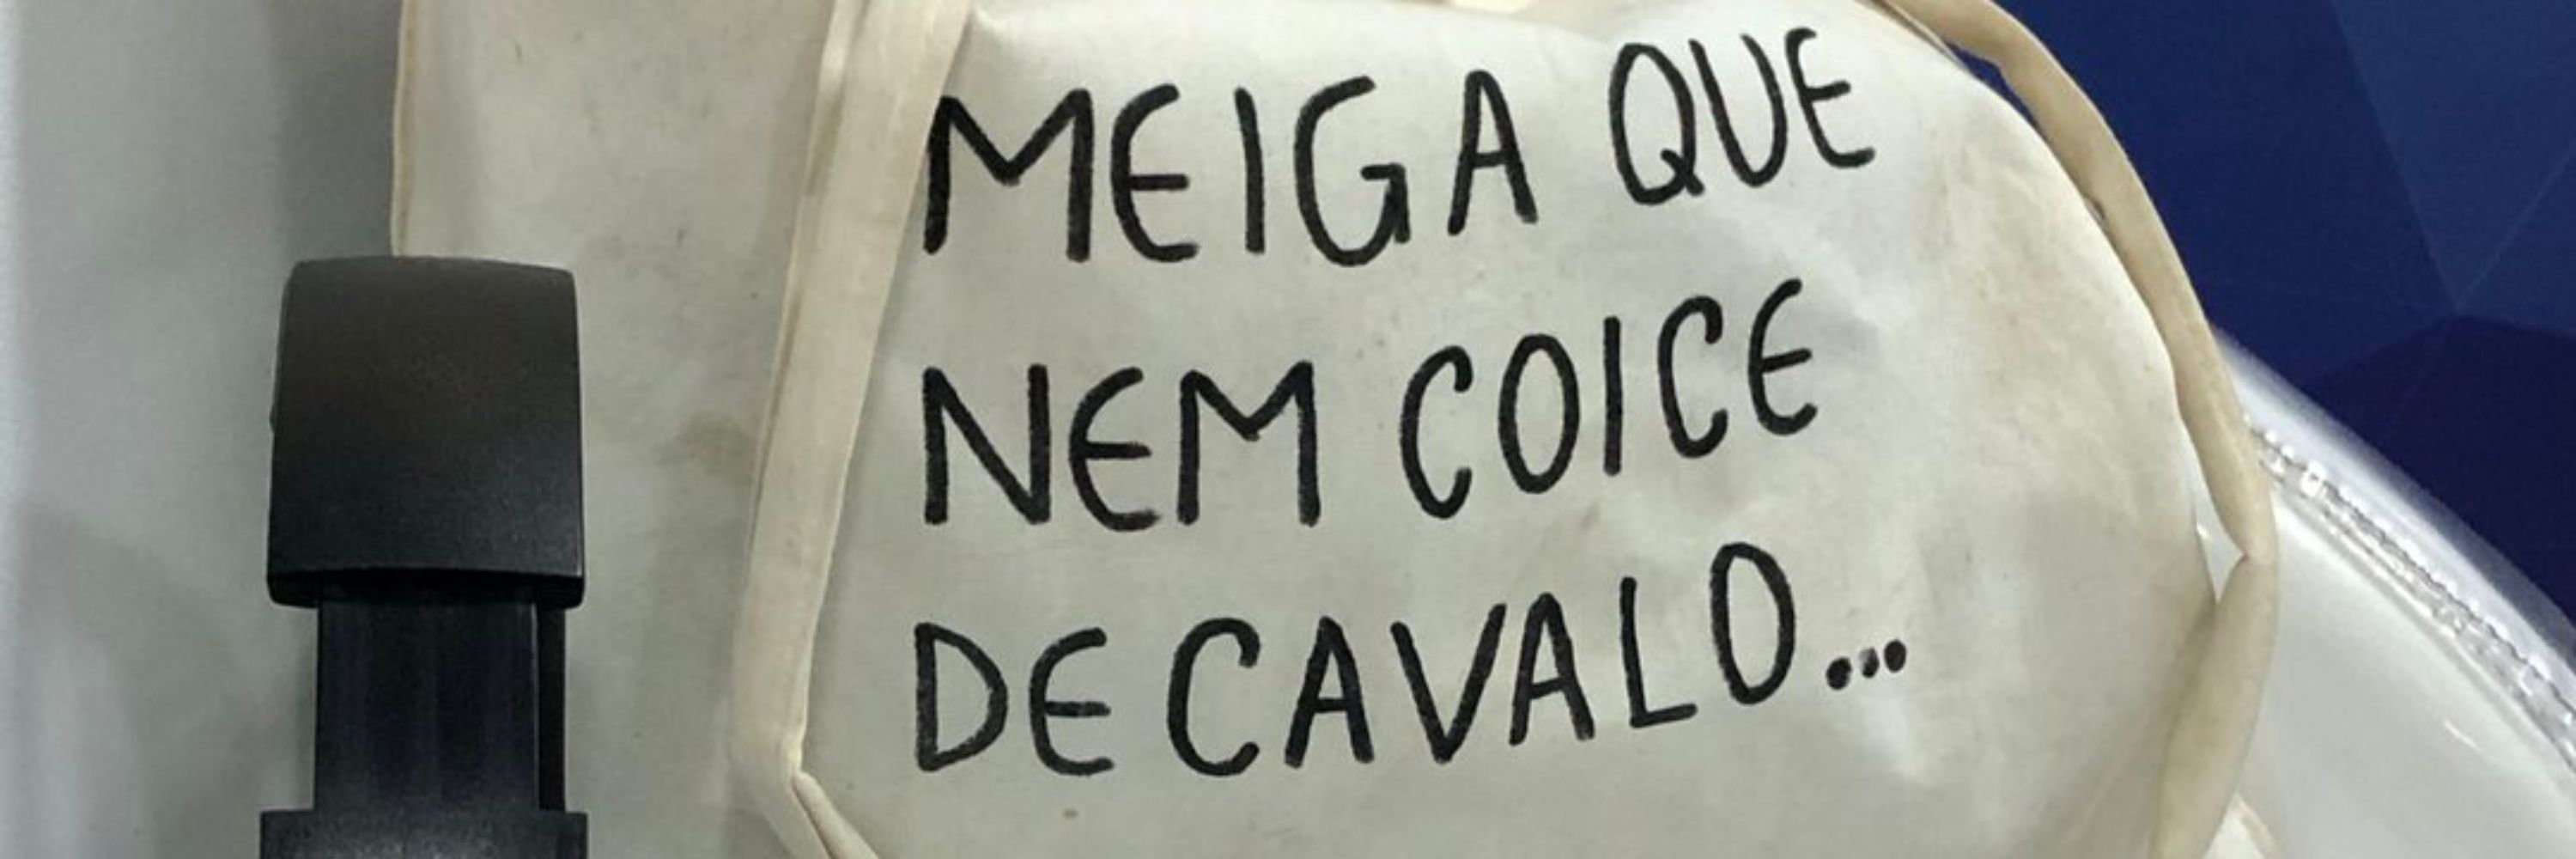 MEIGA QUE
NEM COICE
DE CAVALO...